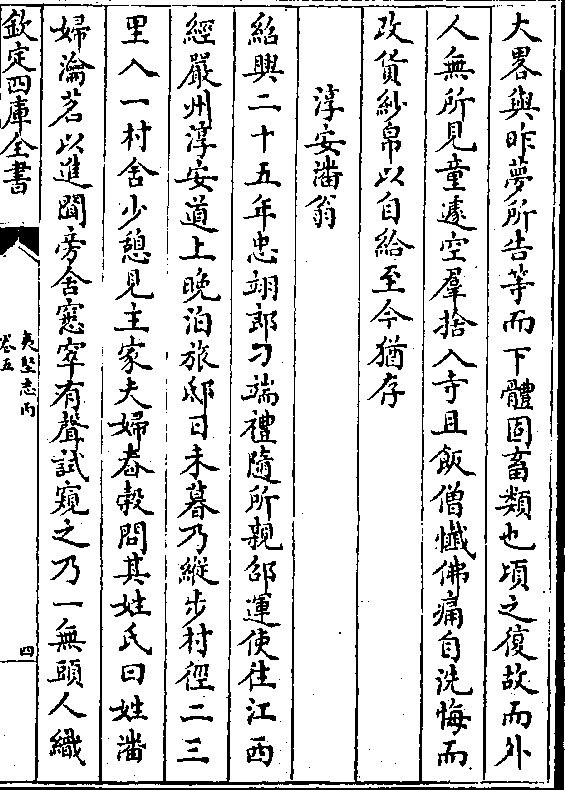 大畧與昨夢所告等而下體固畜類也頃之復故而外
人無所見童遽空羣捨入寺且飯僧懺佛痛自洗悔而
改貨紗帛以自給至今猶存
淳安潘翁
紹興二十五年忠翊郎刁端禮隨所親邵運使往江西
經嚴州淳安道上晚泊旅邸日未暮乃縱步村徑二三
里入一村舍少憩見主家夫婦舂榖問其姓氏曰姓潘
婦瀹茗以進聞旁舍窸窣有聲試窺之乃一無頭人織
欽定四庫全書
夷堅志丙
卷五
四